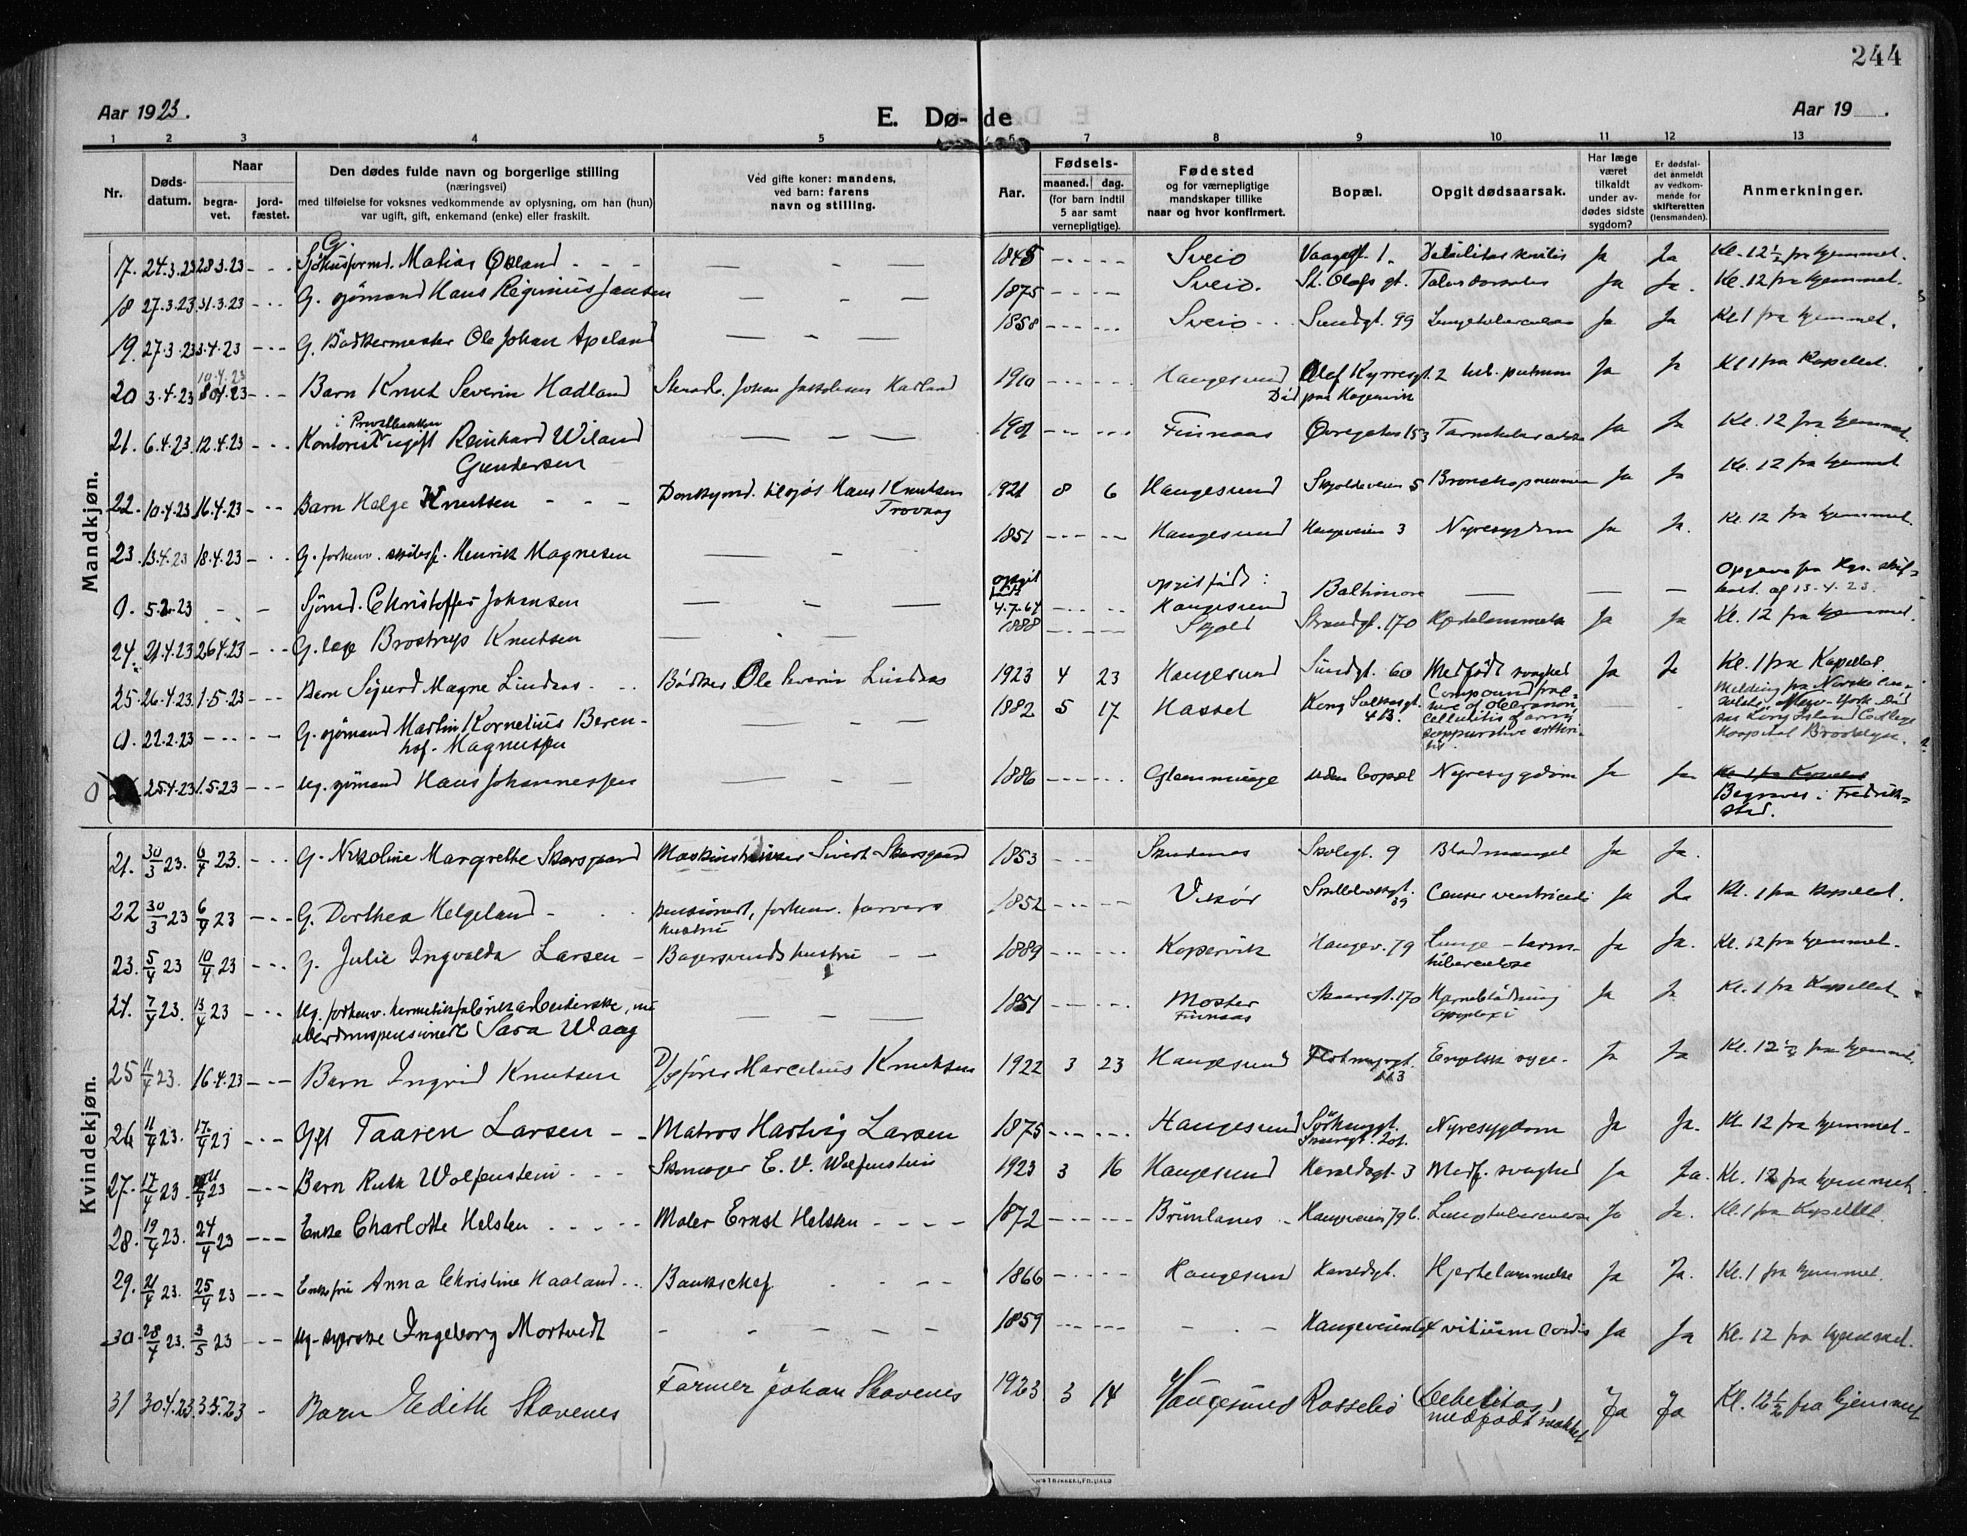 244
Aar 1923.
E. Dø- de
Aar 19 .
1 2 3 4 5 6 7 8 9 10 11 12 13
Nr.
Døds-
datum.
Naar
begra-
vet.
jord-
fæstet.
Den dødes fulde navn og borgerlige stilling
(næringsvei)
med tilføielse for voksnes vedkommende av oplysning, om han (hun)
var ugift, gift, enkemand (enke) eller fraskilt.
Ved gifte koner: mandens,
ved barn: farens
navn og stilling.
Aar.
Fødsels-
maaned. dag.
(for barn indtil
5 aar samt
vernepligtige).
Fødested
og for værnepligtige
mandskaper tillike
naar og hvor konfirmert.
Bopæl.
Opgit dødsaarsak.
Har læge
været
tilkaldt
under av-
dødes sidste
sygdom?
Er dødsfal-
det anmeldt
av vedkom-
mende for
skifteretten
(lensmanden).
Anmerkninger.
Mandkjøn.
17. 24.3.23 28.3.23 Matias Øvland 1845 Sveio Vaagsgt. 1. Ja Ja Kl. 12 1/2 fra hjemmet.
18 27.3.23 31.3.23 G. sjømand Hans Regimius Jansen 1875 Sveio. St. Olafs gt. Tabes dorsales Ja Ja. Kl. 12 fra hjemmet.
19. 27.3.23 3.4.23 G. Bødkermester Ole Johan Apeland 1858 Sveio Sundgt. 99 Lungetuberculose Ja Ja Kl 1 fra hjemmet.
10.4.23
20 3.4.23 Barn Knut Severin Hadland Johan Hadland 1910 Haugesund Olaf Kyrresgt. 2 tub. pulmon Ja Ja Kl 1 fra Kapellet.
Død paa Hagevik
21. 6.4.23 12.4.23 i Privatbanken
Kontorist ugift Reinhard Wiland
Gundersen 1901 Finnaas Øvregaten 153 Ja Ja Kl. 12 fra hjemmet.
22. 10.4.23 16.4.23 Barn Helge Knutsen Hans Knutsen
Trovaag 1921 8 6 Haugesund Skjoldeveien 5 Bronchopneumoni Ja Ja Kl. 12 fra hjemmet
23. 13.4.23 18.4.23 G. forhenv. skibsf. Henrik Magnesen 1851 Haugesund Haugeveien 3 Nyresygdom Ja Ja. Kl. 12 fra hjemmet.
0. 5.2.23 Sjømd. Christoffer Johansen opgit født
4.7.64 opgit født:
Haugesund Baltimore Opgave fra Kgn. skif-
teret. af 13.4.23.
24. 21.4.23 26.4.23 G. læge Brostrup Knutsen 1888 Skjold Strandgt. 170 Hjertelammelse Ja Ja Kl. 12 fra hjemmet.
25. 26.4.23 1.5.23 Barn Sigurd Magne Lindaas Bødker Ole Severin Lindaas 1923 4 23 Haugesund Sundgt. 60 Medfødt svaghed Ja Ja Kl. 1 fra Kapellet.
0. 22.2.23 G. sjømand Martin Kornelius Beren-
hof. Magnussen 1882 5 17. Hassel Kong Sverresgt.
4 B. Compound frac-
ture of olecranon
cellulitis of arm
suppurative arthri-
tis. Melding fra Norske kon-
sulat, New-York. Død
paa Long Island College
Hospital Brooklyn.
0 25.4.23 1.5.23 Ug. sjømand Hans Johannessen 1886 Glemminge uden bopæl Nyresygdom Ja Ja Kl 1 fra Kapellet
Begraves i Fredrik-
stad.
Kvindekjøn.
21. 30/3 23. 6/4 23. G. Nikoline Margrethe Skarsgaard Sivert Skarsgaard 1853 Skudenes Skolegt. 9 Blodmangel Ja Ja.
22 30/3 23 6/4 23 G. Dorthea Helgeland pensionert, forhenv. farvers
hustru 1852 Vikør 39 Cancer ventriculi Ja Ja Kl. 1 fra Kapellet.
23. 5/4 23 10/4 23 G. Julie Ingvalda Larsen Bagersvends hustru 1889 Kopervik Haugev. 79 Lunge-tarm-
tuberculose Ja Ja. Kl. 12 fra hjemmet.
24. 7/4 23. 13/4 23 Ug. forhenv. hermetikfabrikarbeiderske, nu
alderdomspensionert Sara Waag 1851 Moster
Finnaas Skaaregt. 170 Hjerneblødning
apoplexi Ja Ja Kl. 1 fra Kapellet.
25 11/4 23. 16.4.23 Barn Ingrid Knutsen D/s fører Marcelius Knutsen 1922 3 23 Haugesund Flotmyrgt.
113 Engelsk syge. Ja Ja Kl. 12 1/2 fra hjemmet.
26 11/4 23. 17/4 23 Gft Taaren Larsen Matros Hartvig Larsen 1875 Haugesund Sørhauggt. Nyresygdom Ja Ja. Kl. 12 fra hjemmet.
27. 17/4 23. Barn Ruth Wolfenstein Skomager E. V. Wolfenstein 1923 3 16 Haugesund Haraldsgt. 3 Medf. svaghed Ja Ja. Kl. 12 fra hjemmet.
28. 19/4 23. 24/4 23 Enke Charlotte Helsten Maler Ernst Helsten 1872 Brunlanes Haugeveien 79 b. Lungetuberculose Ja Ja. Kl. 1 fra Kapellet.
29. 21/4 23. 25/4 23 Enkefru Anna Christine Haaland Bankschef 1866 Haugesund Haraldsgt. Hjertelammelse Ja Ja. Kl. 1 fra hjemmet.
30. 28/4 23. 3/5 23 Ug. syerske Ingeborg Mortvedt 1859 Haugeveien vitium cordis Ja Ja Kl. 12 fra hjemmet.
31 30.4.23 3.5.23 Barn Edith Stavenes Farmer Johan Stavenes 1923 3 14 Haugesund Rossebø Debelitas,
medfødt svakhet Ja Ja Kl. 12 1/2 fra hjemmet